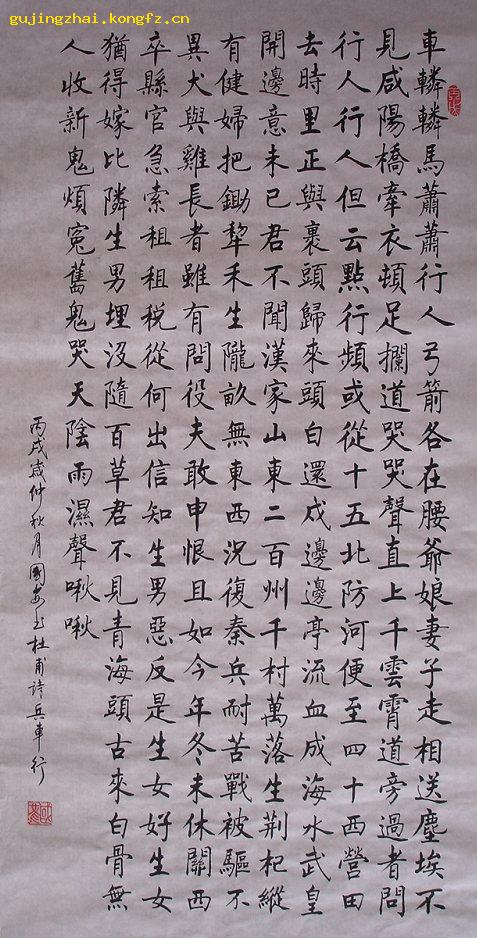 gujingzhai.kongfz.cn
車轔轔馬蕭蕭行人弓箭各在腰爺娘妻子走相送塵埃不
見咸陽橋牽衣頓足攔道哭哭聲直上千雲霄道旁過者問
行人行人但云點行頻或從十五北防河便至四十西營田
去時里正與裹頭歸來頭白還戍邊邊亭流血成海水武皇
開邊意未已君不聞漢家山東二百州千村萬落生荆杞縱
有健婦把鋤犂禾生隴畝無東西況復秦兵耐苦戰被驅不
異犬與雞長者雖有問役夫敢申恨且如今年冬未休關西
卒縣官急索租租税從何出信知生男惡反是生女好生女
猶得嫁比隣生男埋没隨百草君不見青海頭古來白骨無
人收新鬼煩冤舊鬼哭天陰雨濕聲啾啾
丙戌歲仲秋月國安书杜甫詩兵車行